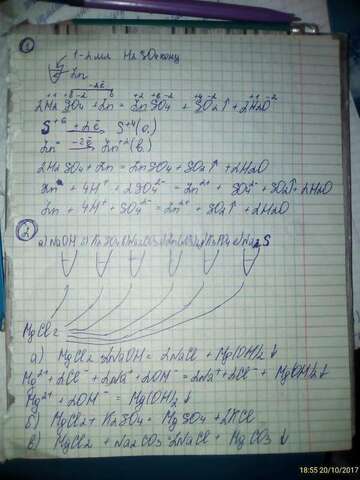 1
1-2 мл H2SO4 конц
Zn
-2ē
+1 +6 -2 0 +2 +6 -2 +4 -2 +1 -2
2H2SO4 + Zn = ZnSO4 + SO2↑ + 2H2O
S+6 +2ē S+4 (о.)
Zn0 -2ē Zn+2 (в.)
2H2SO4 + Zn = ZnSO4 + SO2↑ + 2H2O
Zn0 + 4H+ + 2SO4 2- = Zn2+ + SO4 2- + SO2↑ + 2H2O
Zn + 4H+ + SO4 2- = Zn2+ + SO2↑ + 2H2O
2
а) NaOH K2SO4 Na2CO3 K3PO4 Na2S
MgCl2
а) MgCl2 2NaOH = 2NaCl + Mg(OH)2↓
Mg2+ + 2Cl- + 2Na+ + 2OH- = 2Na+ + 2Cl- + Mg(OH)2↓
Mg2+ + 2OH- = Mg(OH)2↓
б) MgCl2 + K2SO4 = MgSO4 + 2KCl
в) MgCl2 + Na2CO3 = 2NaCl + MgCO3↓
18:55 20/10/2017